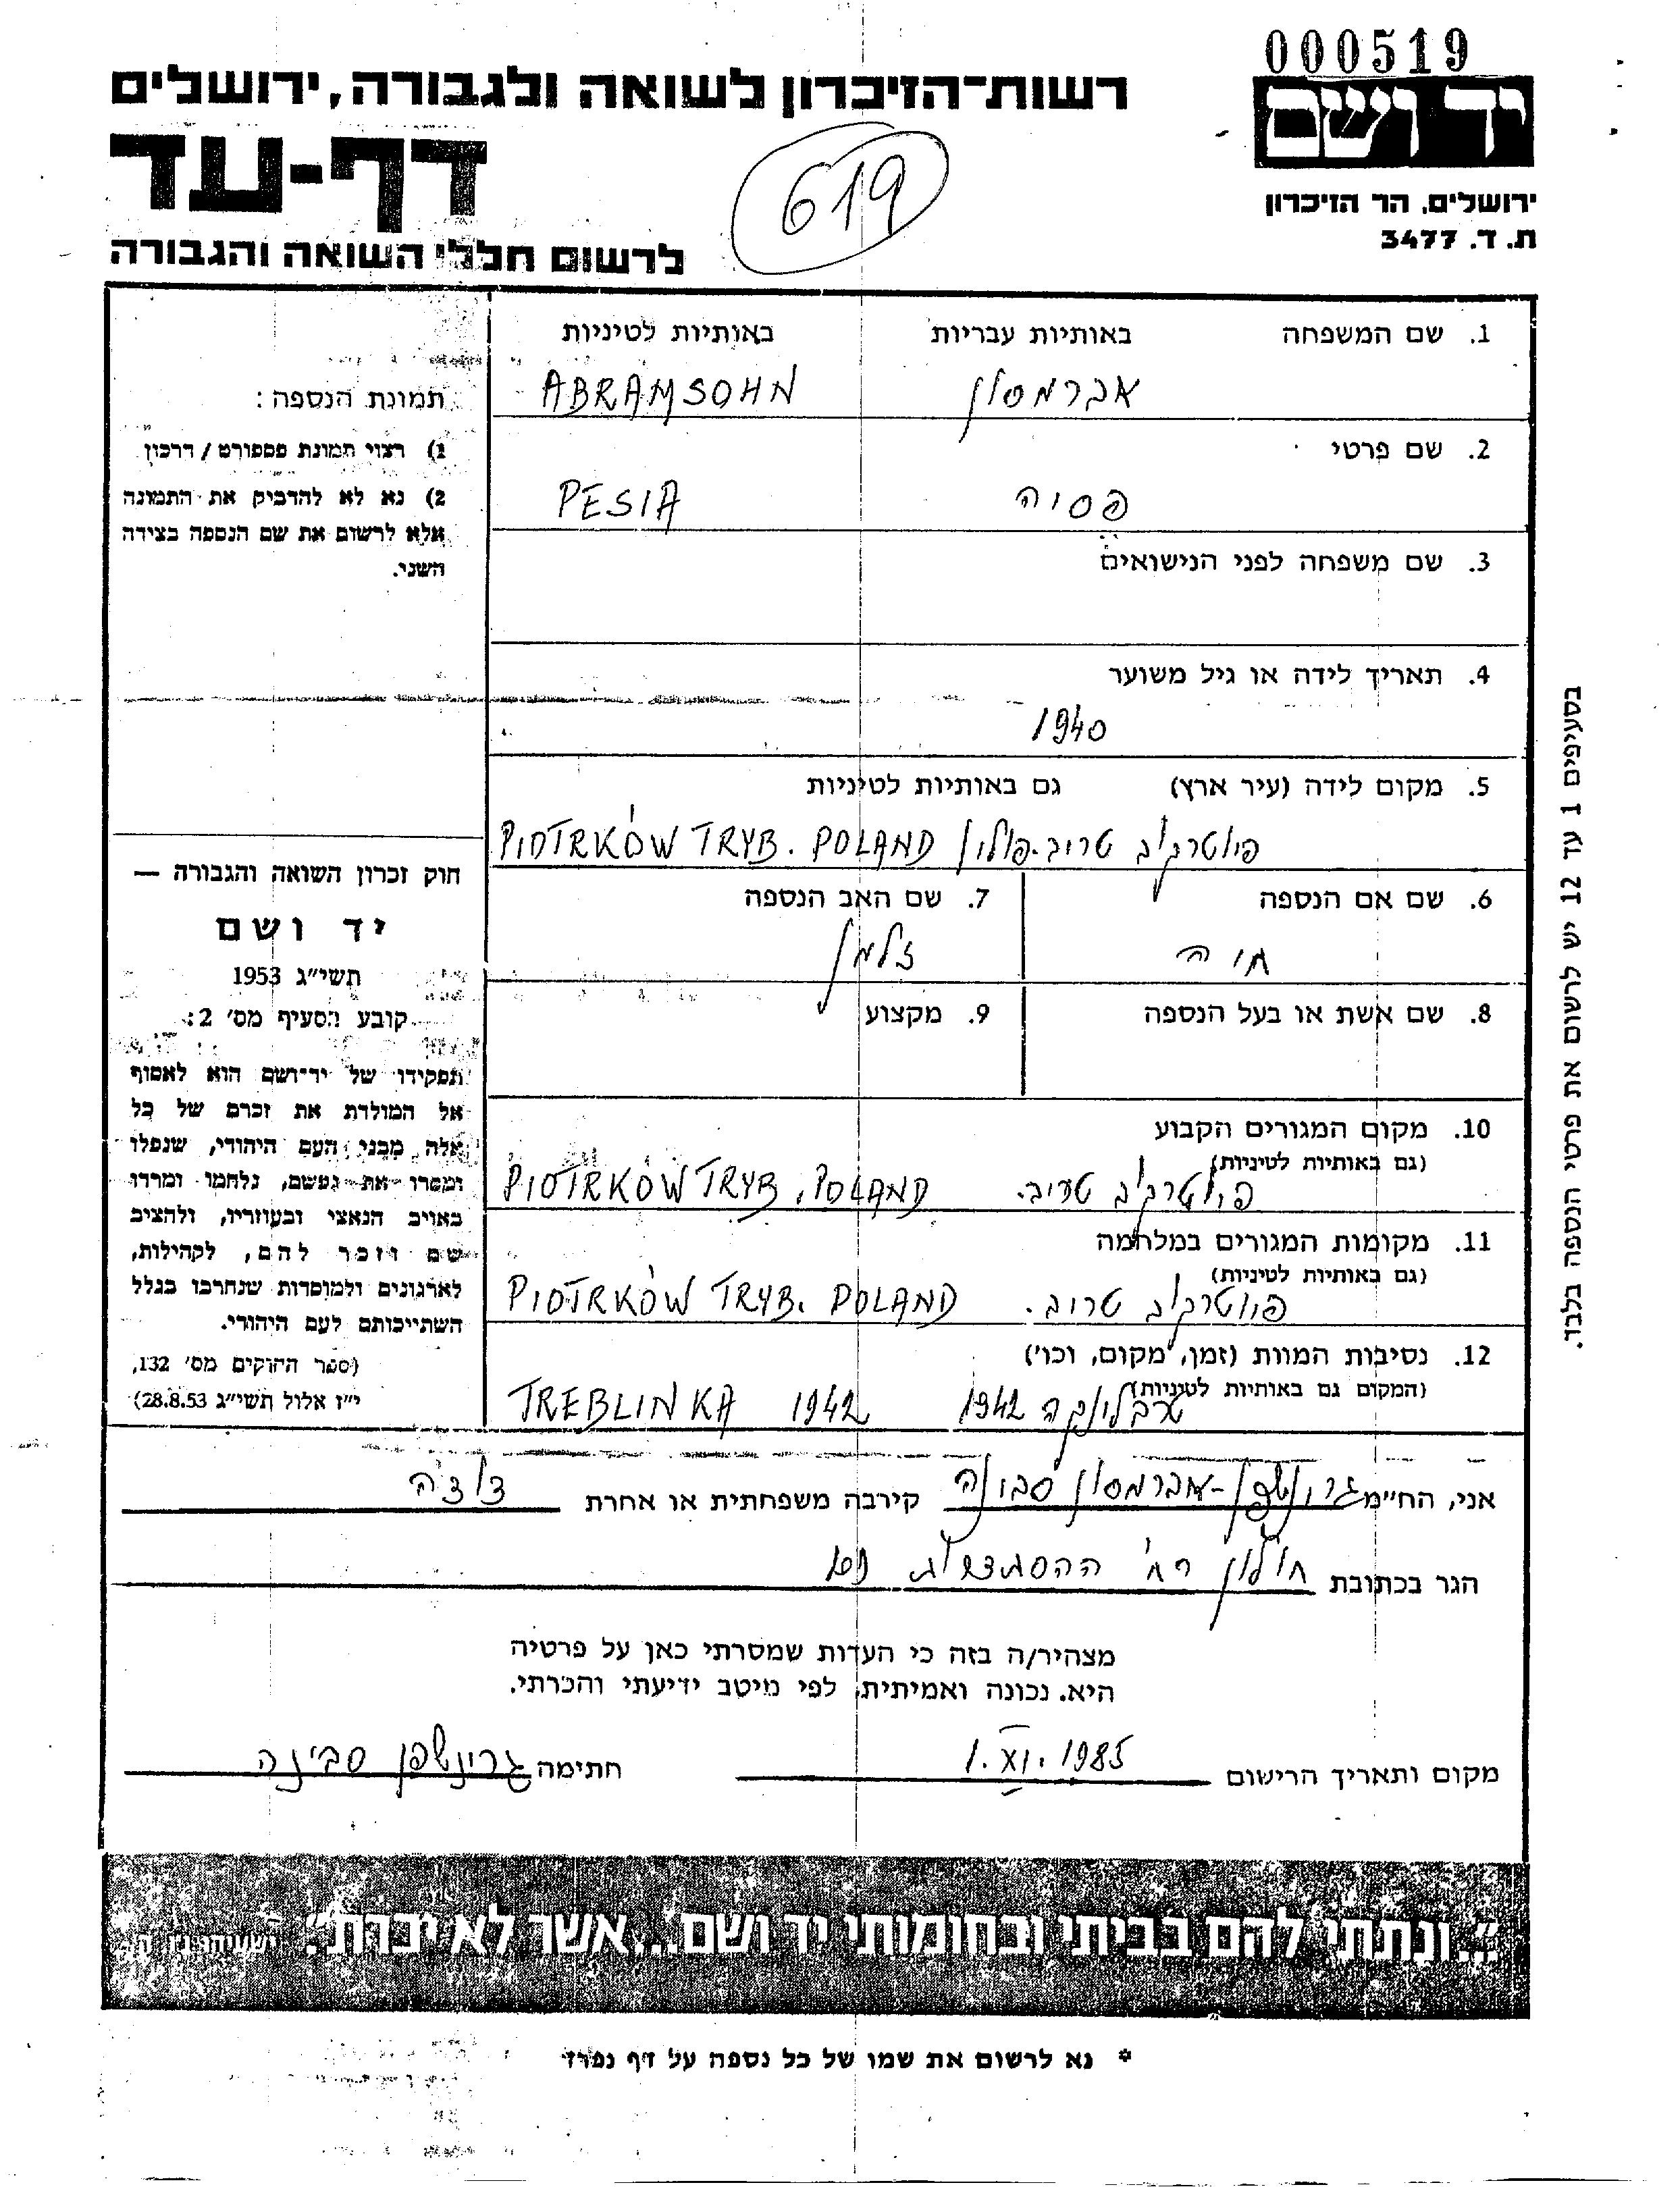 000519
יד ושם
ירושלים, הר הזיכרון
ת. ד. 3477
רשות־הזיכרון לשואה ולגבורה, ירושלים
דף-עד
619
לרשום חללי השואה והגבורה
1. שם המשפחה באותיות עבריות באותיות לטיניות
אברמסון ABRAMSOHN
2. שם פרטי
פסיה PESIA
3. שם משפחה לפני הנישואים
4. תאריך לידה או גיל משוער
1940
5. מקום לידה (עיר ארץ) גם באותיות לטיניות
פיוטרקוב טריב. פולין PIOTRKÓW TRYB. POLAND
6. שם אם הנספה 7. שם האב הנספה
חיה זלמן
8. שם אשת או בעל הנספה 9. מקצוע
10. מקום המגורים הקבוע
(גם באותיות לטיניות)
פיוטרקוב טריב. PIOTRKÓW TRYB. POLAND
11. מקומות המגורים במלחמה
(גם באותיות לטיניות)
פיוטרקוב טריב. PIOTRKÓW TRYB. POLAND
12. נסיבות המוות (זמן, מקום, וכו')
(המקום גם באותיות לטיניות)
טרבלינקה 1942 TREBLINKA 1942
תמונת הנספה:
1) רצוי תמונת פספורט / דרכון
2) נא לא להדביק את התמונה
אלא לרשום את שם הנספה בצידה
השני.
חוק זכרון השואה והגבורה —
יד ושם
תשי"ג 1953
קובע הסעיף מס' 2:
תפקידו של יד־ושם הוא לאסוף
אל המולדת את זכרם של כל
אלה מבני העם היהודי, שנפלו
ומסרו את נפשם, נלחמו ומרדו
באויב הנאצי ובעוזריו, ולהציב
שם וזכר להם, לקהילות,
לארגונים ולמוסדות שנחרבו בגלל
השתייכותם לעם היהודי.
(ספר החוקים מס' 132,
י"ז אלול תשי"ג 28.8.53)
בסעיפים 1 עד 12 יש לרשום את פרטי הנספה בלבד.
אני, החיימ גרינשפן-אברמסון סבינה קירבה משפחתית או אחרת דודה
הגר בכתובת חולון רח' ההסתדרות
מצהיר/ה בזה כי העדות שמסרתי כאן על פרטיה
היא. נכונה ואמיתית, לפי מיטב ידיעתי והכרתי.
מקום ותאריך הרישום 1.XI.1985 חתימה גרינשפן סבינה
"...ונתתי להם בביתי ובחומותי יד ושם...אשר לא יכרת". ישעיהו נו ה
* נא לרשום את שמו של כל נספה על דף נפרד